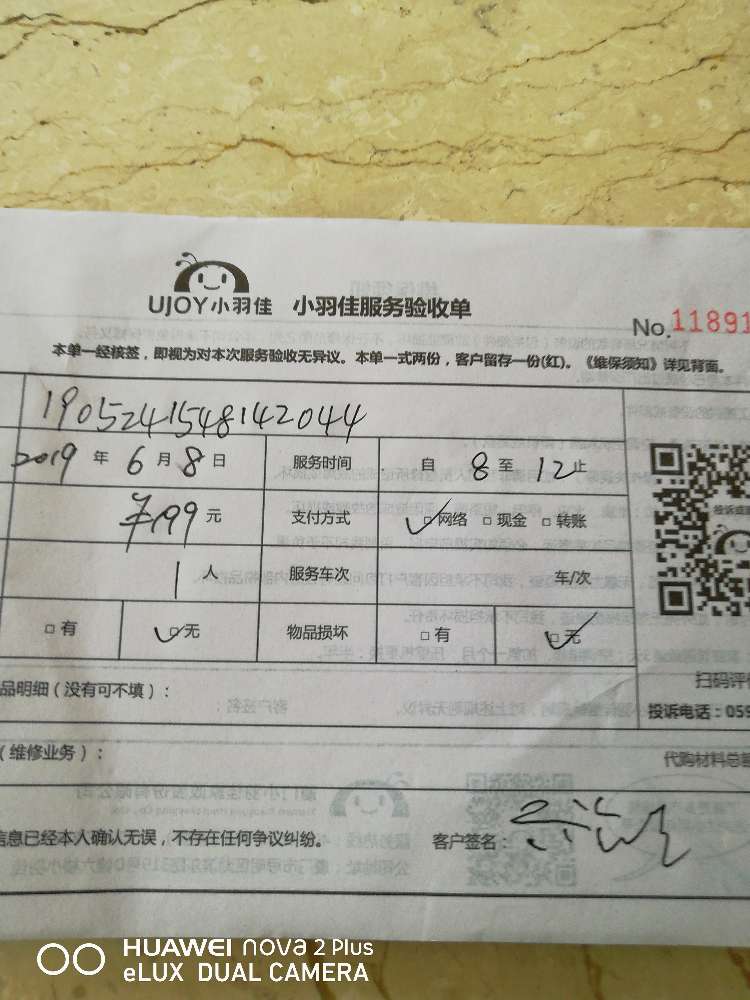 UJOY小羽佳 小羽佳服务验收单
No.11891
本单一经核签，即视为对本次服务验收无异议。本单一式两份，客户留存一份(红)。《维保须知》详见背面。
1905241548142044
2019 年 6 月 8 日 服务时间 自 8 至 12 止
¥199 元 支付方式 ✓□网络 □现金 □转账
投诉或
1 人 服务车次 车/次
□有 ✓□无 物品损坏 □有 ✓□无
品明细（没有可不填）：
扫码评价
投诉电话：059
（维修业务）：
代购材料总
信息已经本人确认无误，不存在任何争议纠纷。 客户签名：
HUAWEI nova 2 Plus
eLUX DUAL CAMERA